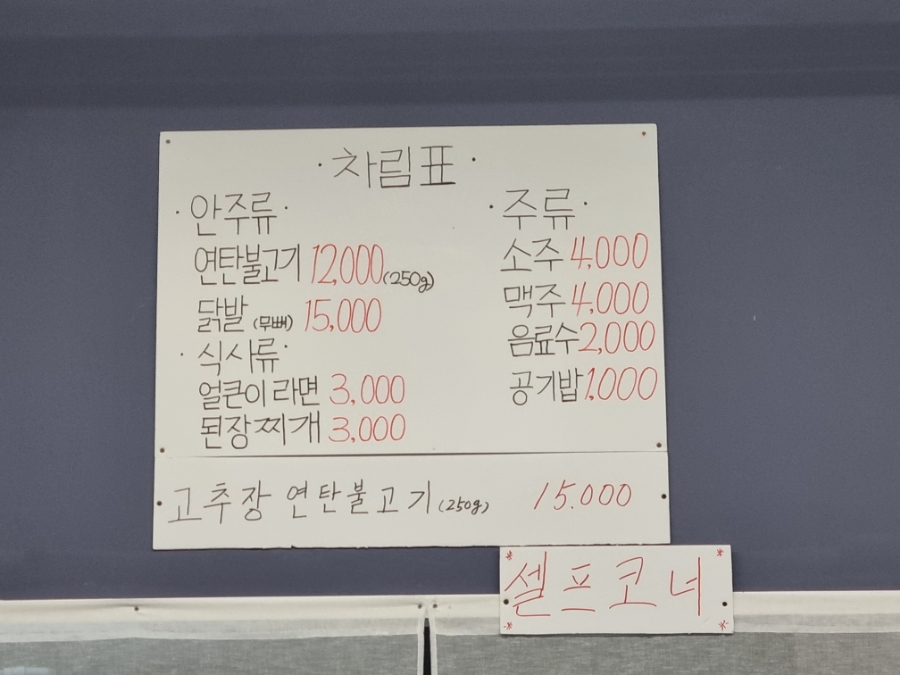 · 차림표 ·
· 안주류 ·
연탄불고기 12,000 (250g)
닭발 (무뼈) 15,000
· 식사류 ·
얼큰이 라면 3,000
된장찌개 3,000
· 주류 ·
소주 4,000
맥주 4,000
음료수 2,000
공기밥 1,000
고추장 연탄불고기 (250g) 15.000
셀프코너